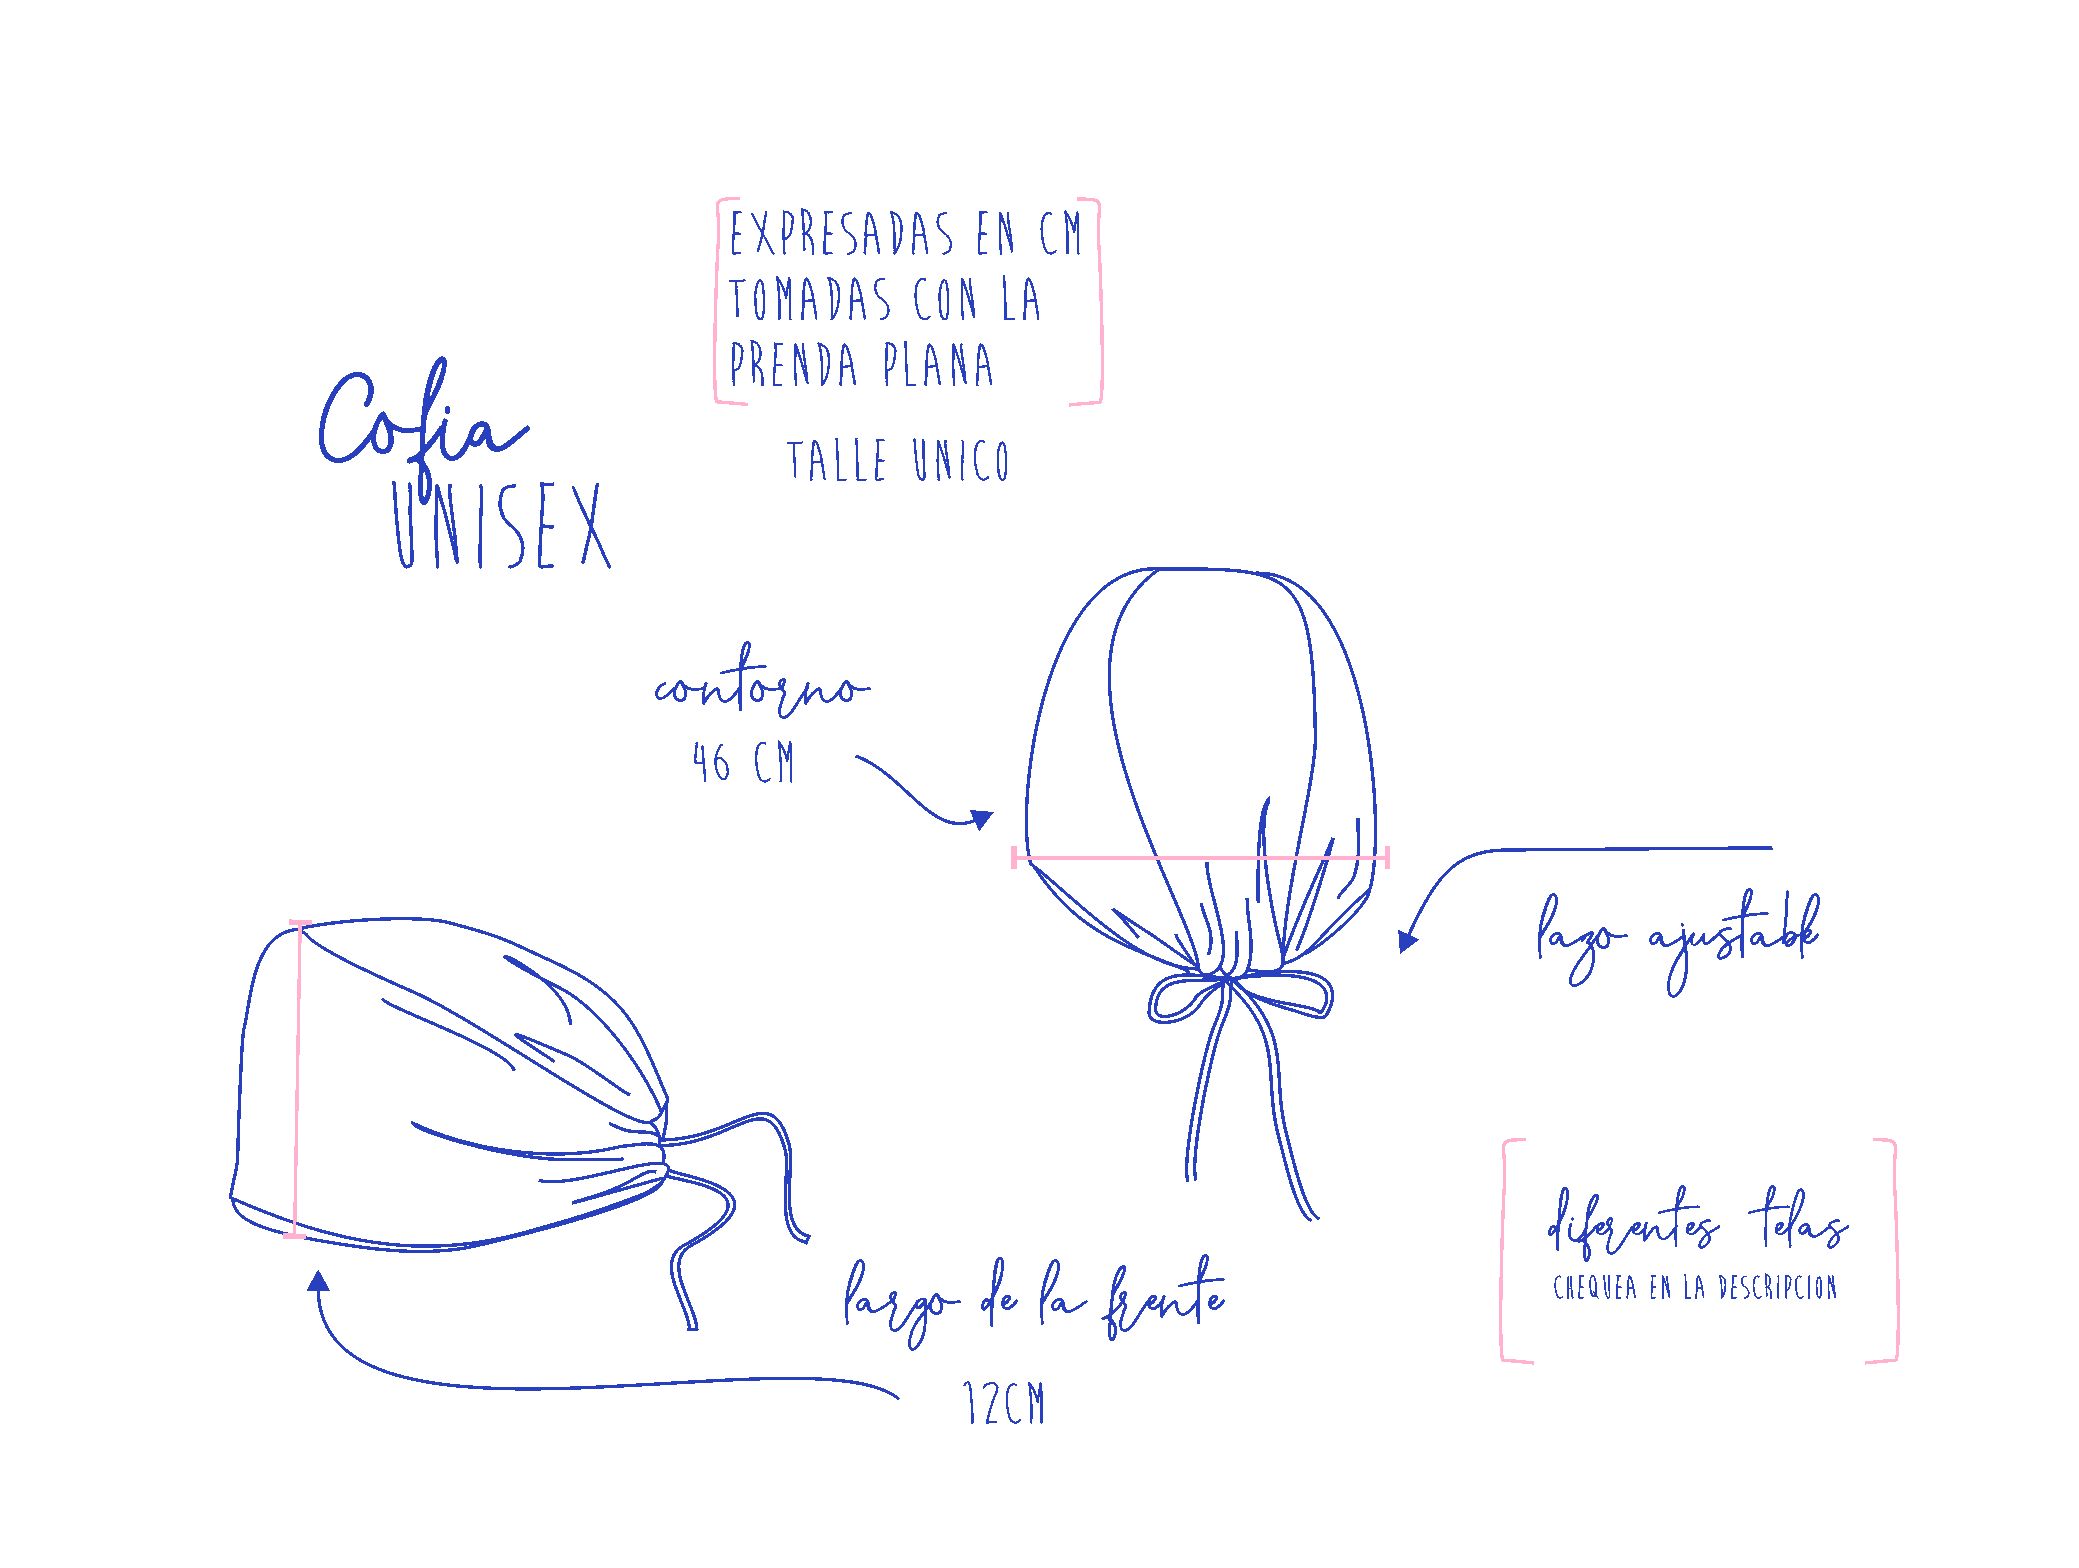 EXPRESADAS EN CM
TOMADAS CON LA
PRENDA PLANA
TALLE UNICO
Cofia
UNISEX
contorno
46 CM
lazo ajustable
diferentes telas
CHEQUEA EN LA DESCRIPCION
largo de la frente
12CM